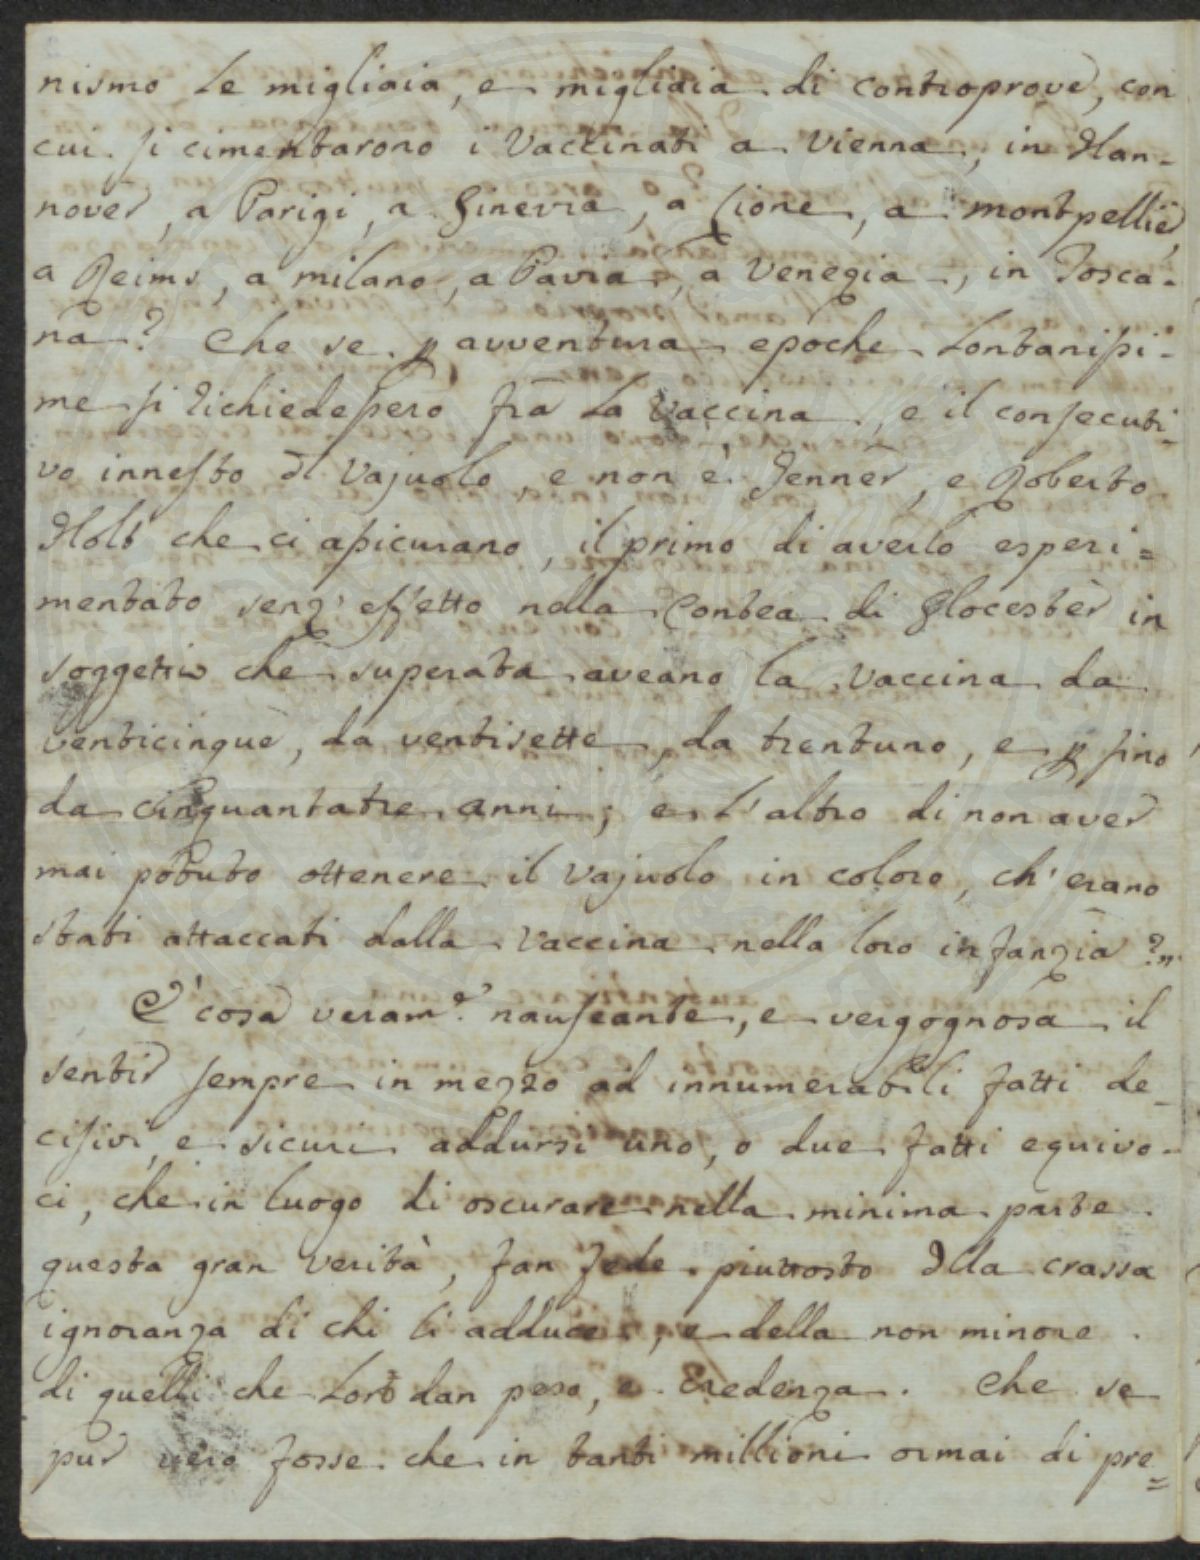 nismo le migliaia, e migliaia di controprove, con
cui si cimentarono i Vaccinati a Vienna, in Han-
nover, a Parigi, a Ginevra, a Lione, a Montpellier,
a Reims, a Milano, a Pavia, a Venezia, in Tosca-
na? Che se p avventura epoche lontanissi-
me si richiedessero fra la Vaccina, e il consecuti-
vo innesto di Vajuolo, e non è Jenner, e Roberto
Holt che ci assicurano, il primo di averlo esperi=
mentato senz' effetto nella Contea di Glocester in
soggetti che superata aveano la Vaccina da
venticinque, da ventisette, da trentuno, e p sino
da cinquantatre anni; e l'altro di non aver
mai potuto ottenere il Vajuolo in coloro, ch' erano
stati attaccati dalla Vaccina nella loro infanzia?"
E' cosa veram.e nauseante, e vergognosa il
sentir sempre in mezzo ad innumerabili fatti de-
cisivi, e sicuri addursi uno, o due fatti equivo-
ci, che in luogo di oscurare nella minima parte
questa gran verità, fan fede piuttosto dlla crassa
ignoranza di chi li adduce, e della non minore
di quelli che loro dan peso, e credenza. Che se
pur vero fosse che in tanti millioni ormai di pre=